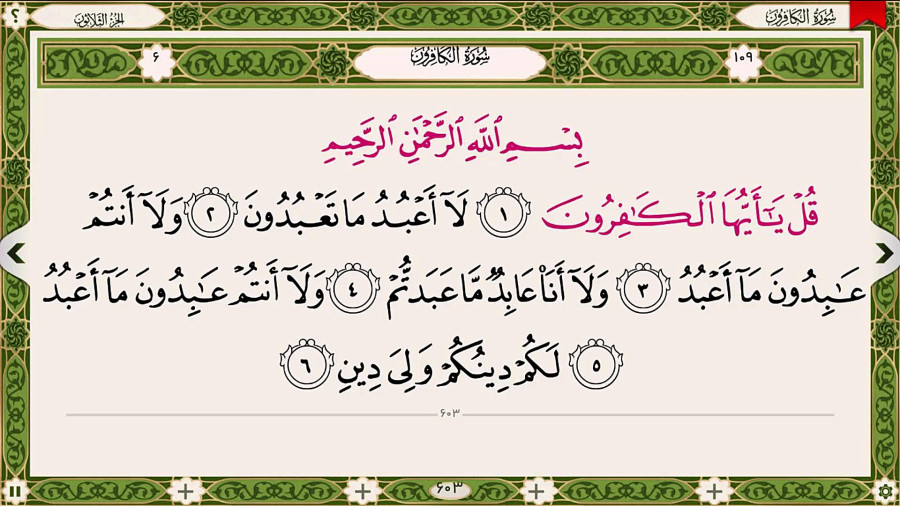 ؟
الجزء الثلاثون
سورة الكافرون
٦
سورة الكافرون
١٠٩
بِسْمِ ٱللَّهِ ٱلرَّحْمَٰنِ ٱلرَّحِيمِ
قُلْ يَـٰٓأَيُّهَا ٱلْكَـٰفِرُونَ ١ لَآ أَعْبُدُ مَا تَعْبُدُونَ ٢ وَلَآ أَنتُمْ
عَـٰبِدُونَ مَآ أَعْبُدُ ٣ وَلَآ أَنَا۠ عَابِدٌ مَّا عَبَدتُّمْ ٤ وَلَآ أَنتُمْ عَـٰبِدُونَ مَآ أَعْبُدُ
٥ لَكُمْ دِينُكُمْ وَلِىَ دِينِ ٦
٦٠٣
٦٠٣